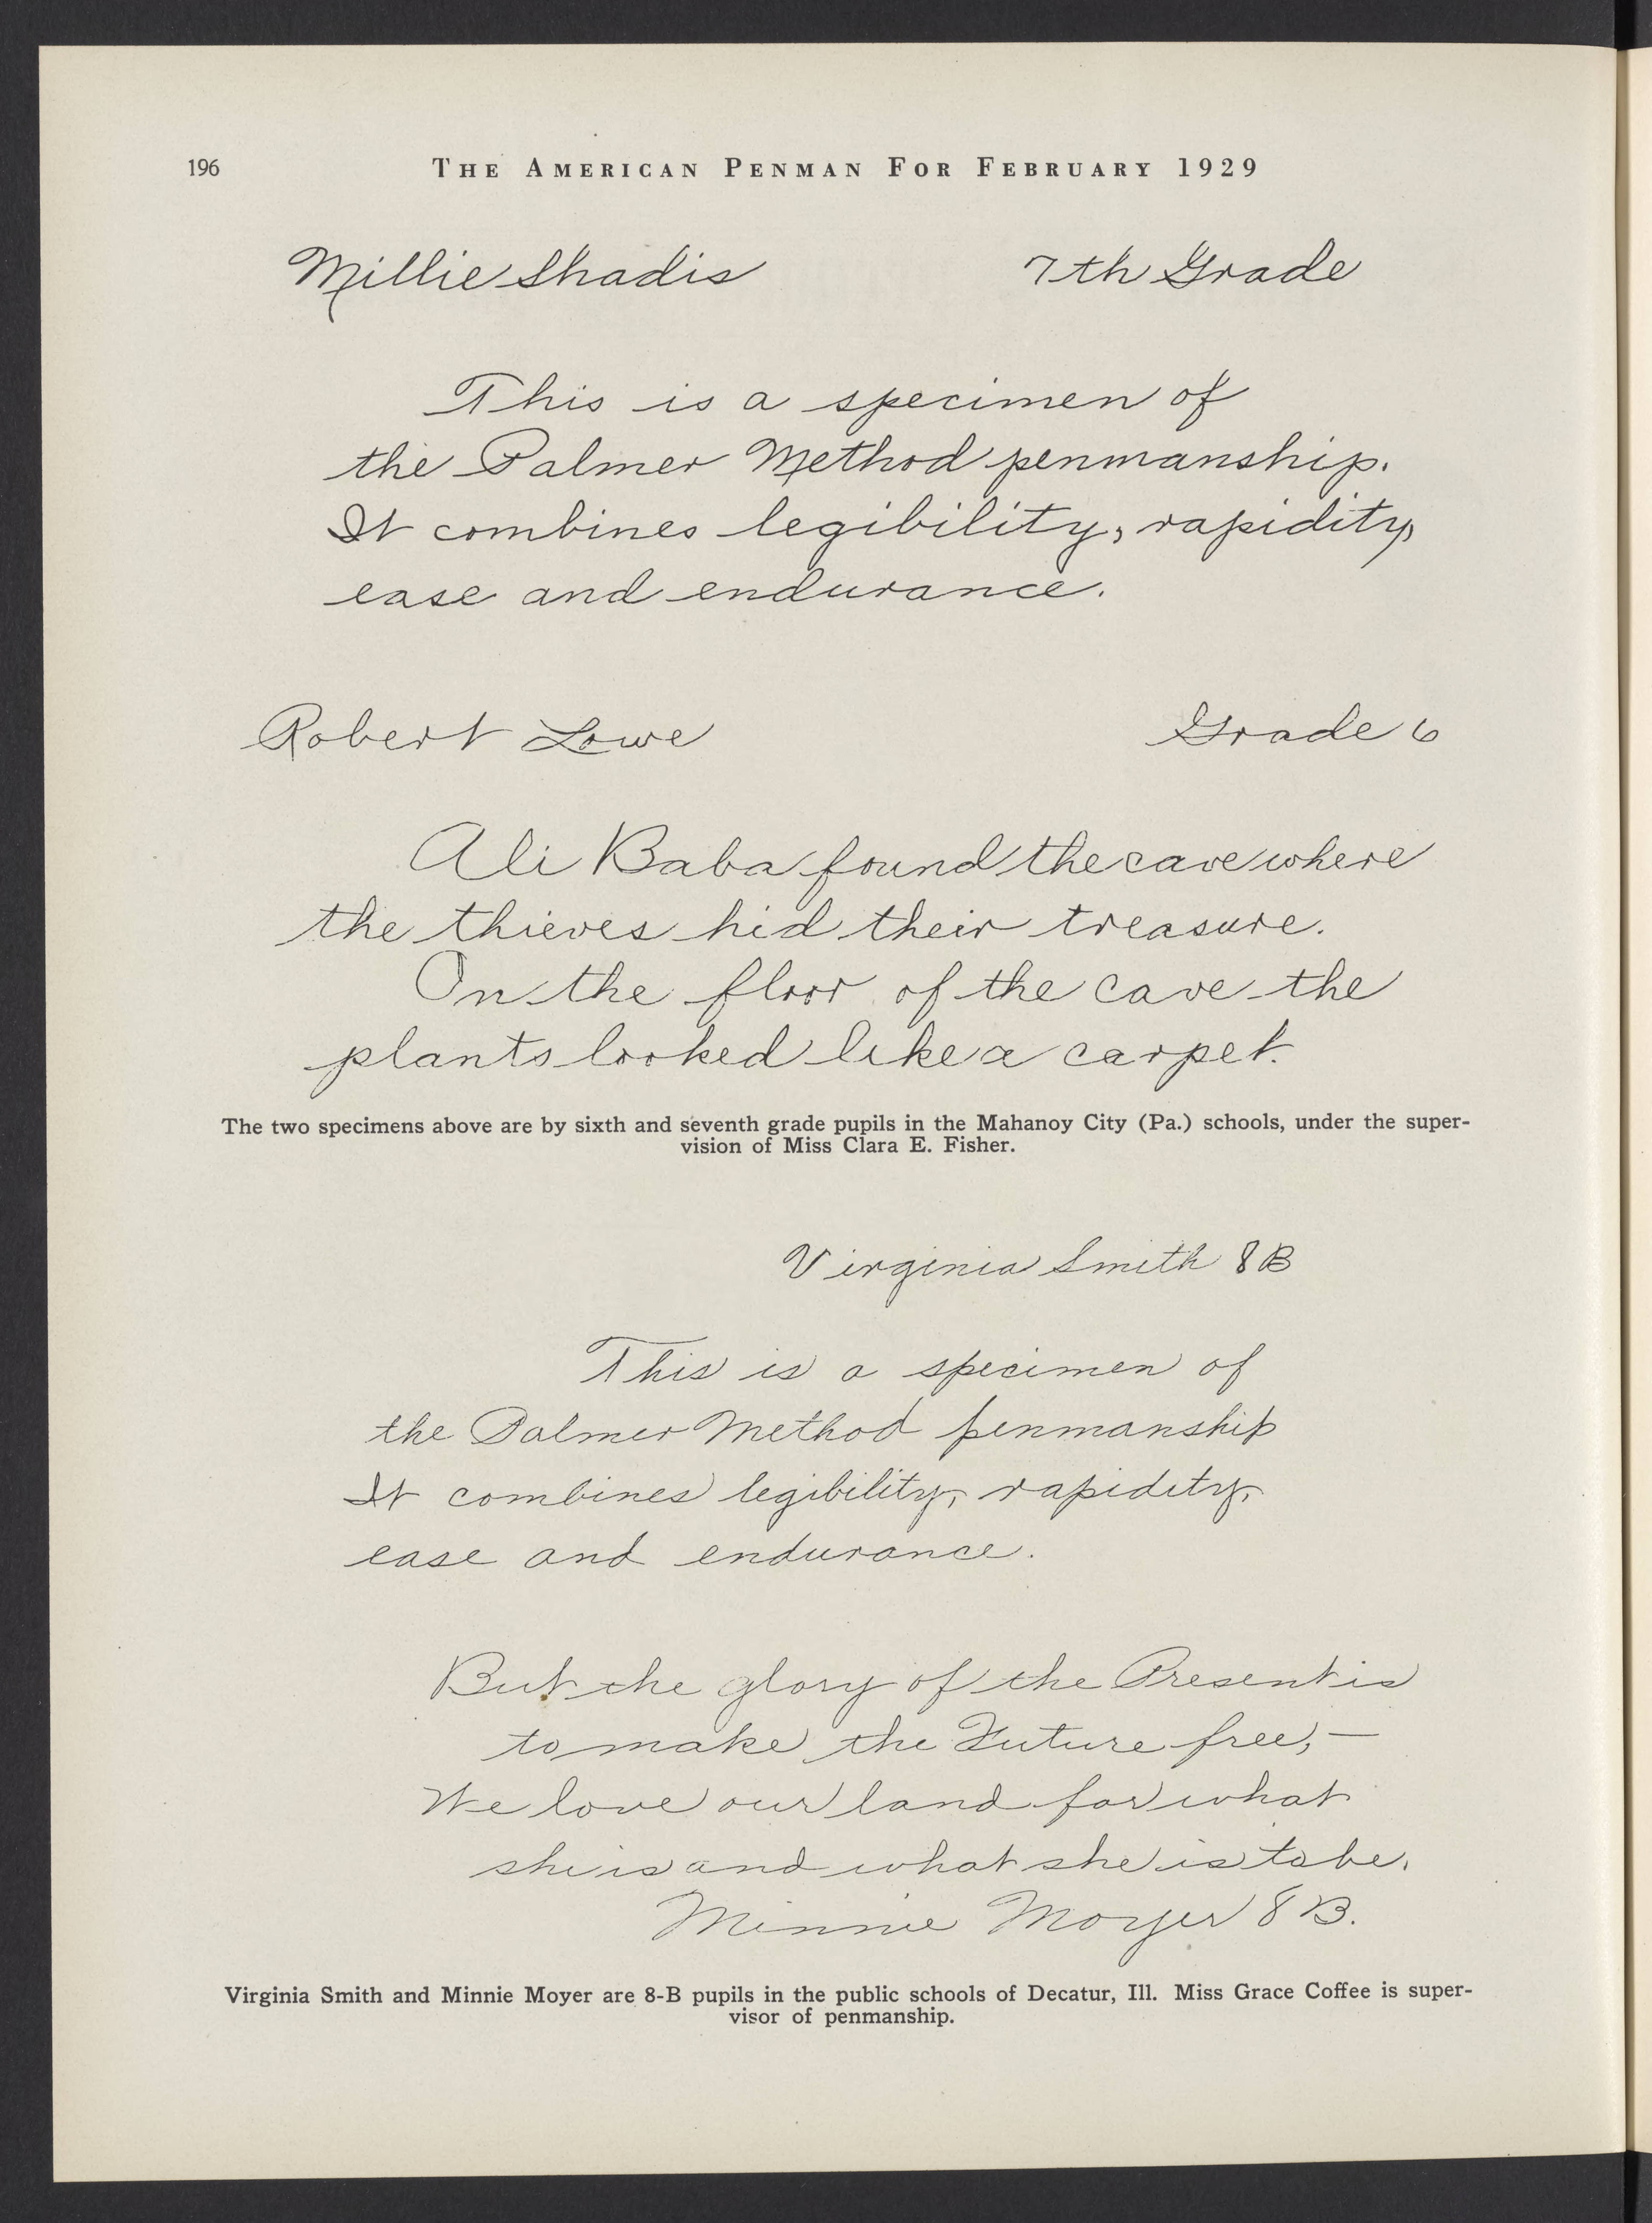 196
THE AMERICAN PENMAN FOR FEBRUARY 1929
Millie Shadis 7th Grade
This is a specimen of
the Palmer Method penmanship.
It combines legibility, rapidity,
ease and endurance.
Robert Lowe Grade 6
Ali Baba found the cave where
the thieves hid their treasure.
On the floor of the cave the
plants looked like a carpet.
The two specimens above are by sixth and seventh grade pupils in the Mahanoy City (Pa.) schools, under the super-
vision of Miss Clara E. Fisher.
Virginia Smith 8B
This is a specimen of
the Palmer Method penmanship
It combines legibility, rapidity,
ease and endurance.
But the glory of the Present is
to make the Future free,—
We love our land for what
she is and what she is to be.
Minnie Moyer 8B.
Virginia Smith and Minnie Moyer are 8-B pupils in the public schools of Decatur, Ill. Miss Grace Coffee is super-
visor of penmanship.